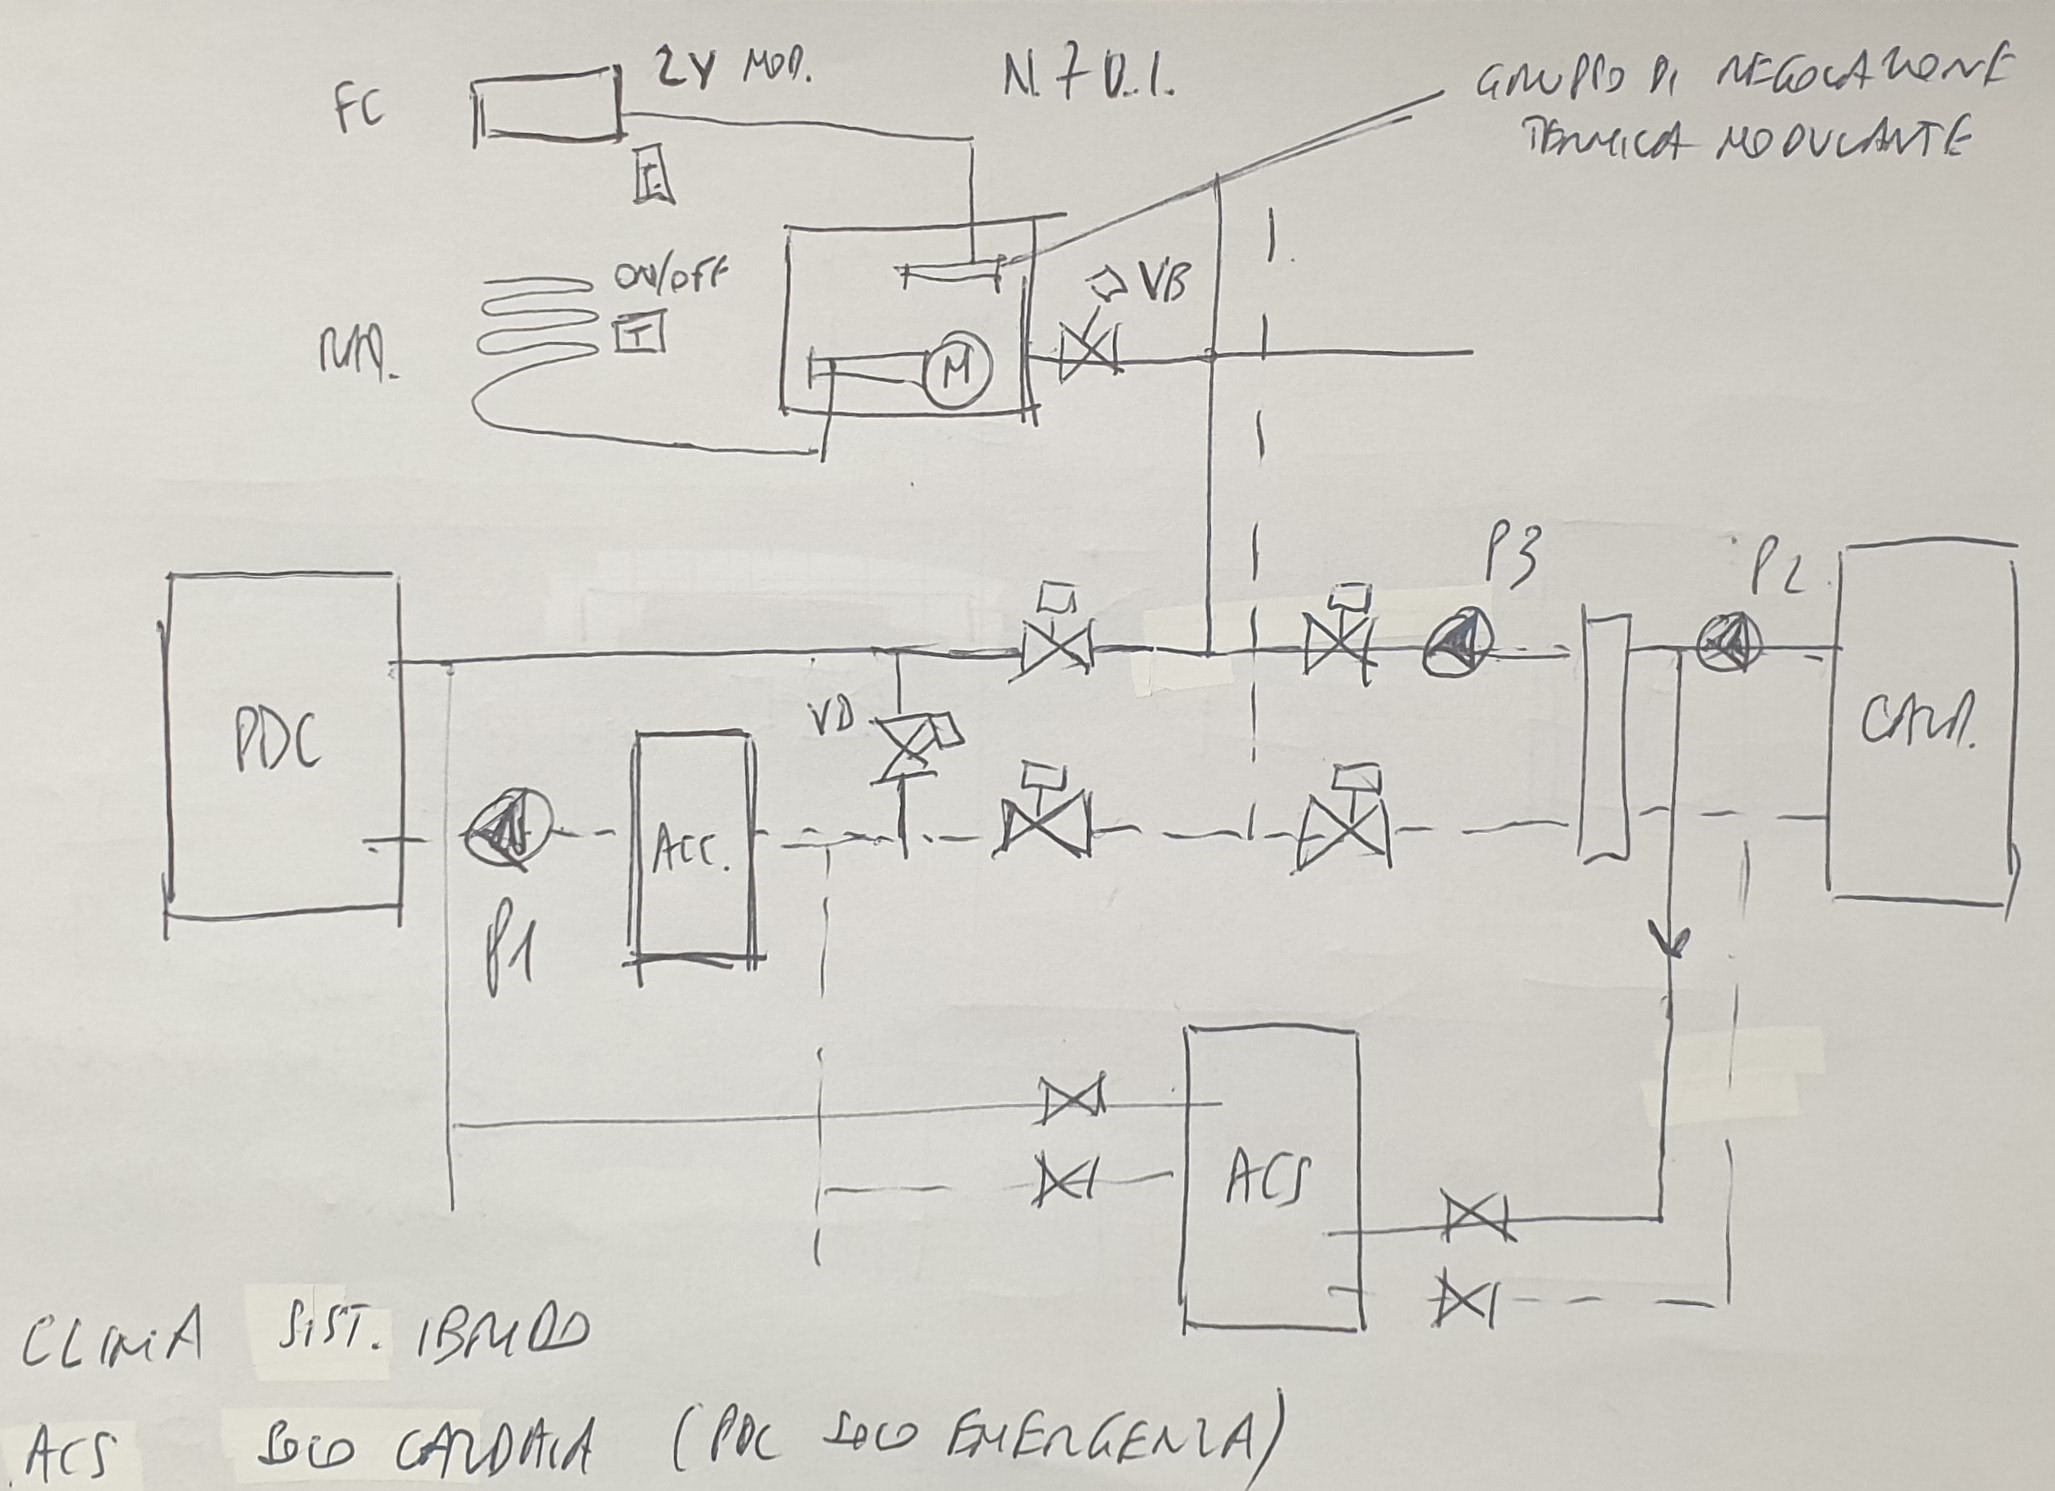 FC
2V MOD.
N. 7 D.I.
GRUPPO DI REGOLAZIONE
TERMICA MODULANTE
T
ON/OFF
RAD.
T
VB
M
P3
P2
PDC
VD
ACC.
CALD.
P1
ACS
CLIMA SIST. IBRIDO
ACS SOLO CALDAIA (PDC SOLO EMERGENZA)